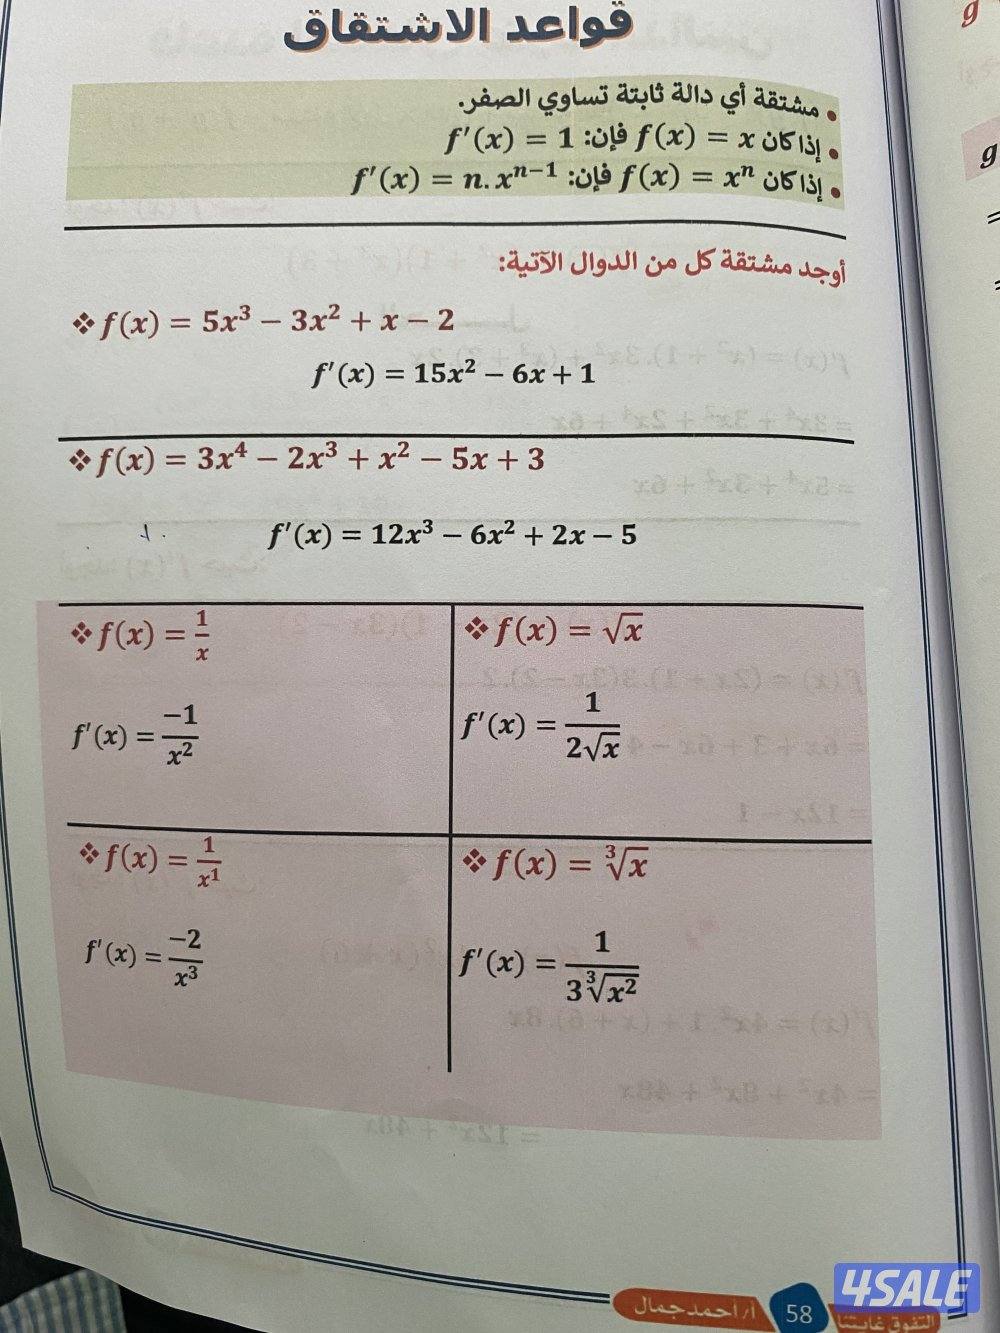 قواعد الاشتقاق
• مشتقة أي دالة ثابتة تساوي الصفر.
• إذا كان f(x) = x فإن: f′(x) = 1
• إذا كان f(x) = xⁿ فإن: f′(x) = n. xⁿ⁻¹
أوجد مشتقة كل من الدوال الآتية:
❖ f(x) = 5x³ − 3x² + x − 2
f′(x) = 15x² − 6x + 1
❖ f(x) = 3x⁴ − 2x³ + x² − 5x + 3
f′(x) = 12x³ − 6x² + 2x − 5
❖ f(x) = 1/x
f′(x) = −1/x²
❖ f(x) = √x
f′(x) = 1/(2√x)
❖ f(x) = 1/x¹
f′(x) = −2/x³
❖ f(x) = ∛x
f′(x) = 1/(3∛x²)
أ/أحمد جمال
58
التفوق غايتنا
4SALE
g
g
=